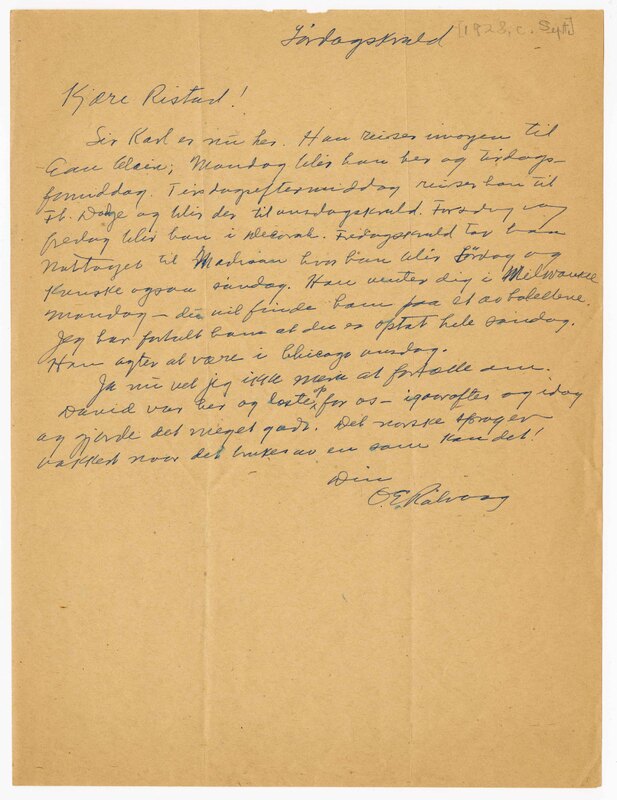 Lørdagskveld [1928, c. Sept.]
Kjære Ristad!
Sir Karl er nu her. Han reiser imorgen til
Eau Claire; Mandag blir han her og tirsdags-
formiddag. Tirsdagseftermiddag reiser han til
Ft. Dodge og blir der til onsdagskveld. Torsdag og
fredag blir han i Decorah. Fredagskveld tar han
Nattoget til Madison hvor han blir Lørdag og
kanske ogsaa søndag. Han venter dig i Milwaukee
mandag — du vil finde ham paa et av hotellene.
Jeg har fortalt ham at du er optat hele søndag.
Han agter at være i Chicago onsdag.
Ja nu vet jeg ikke mere at fortælle om.
David var her og læste op for os — igaaraftes og idag
og gjorde det meget godt. Det norske sprog er
vakkert naar det brukes av en som kan det!
Din
O.E. Rølvaag